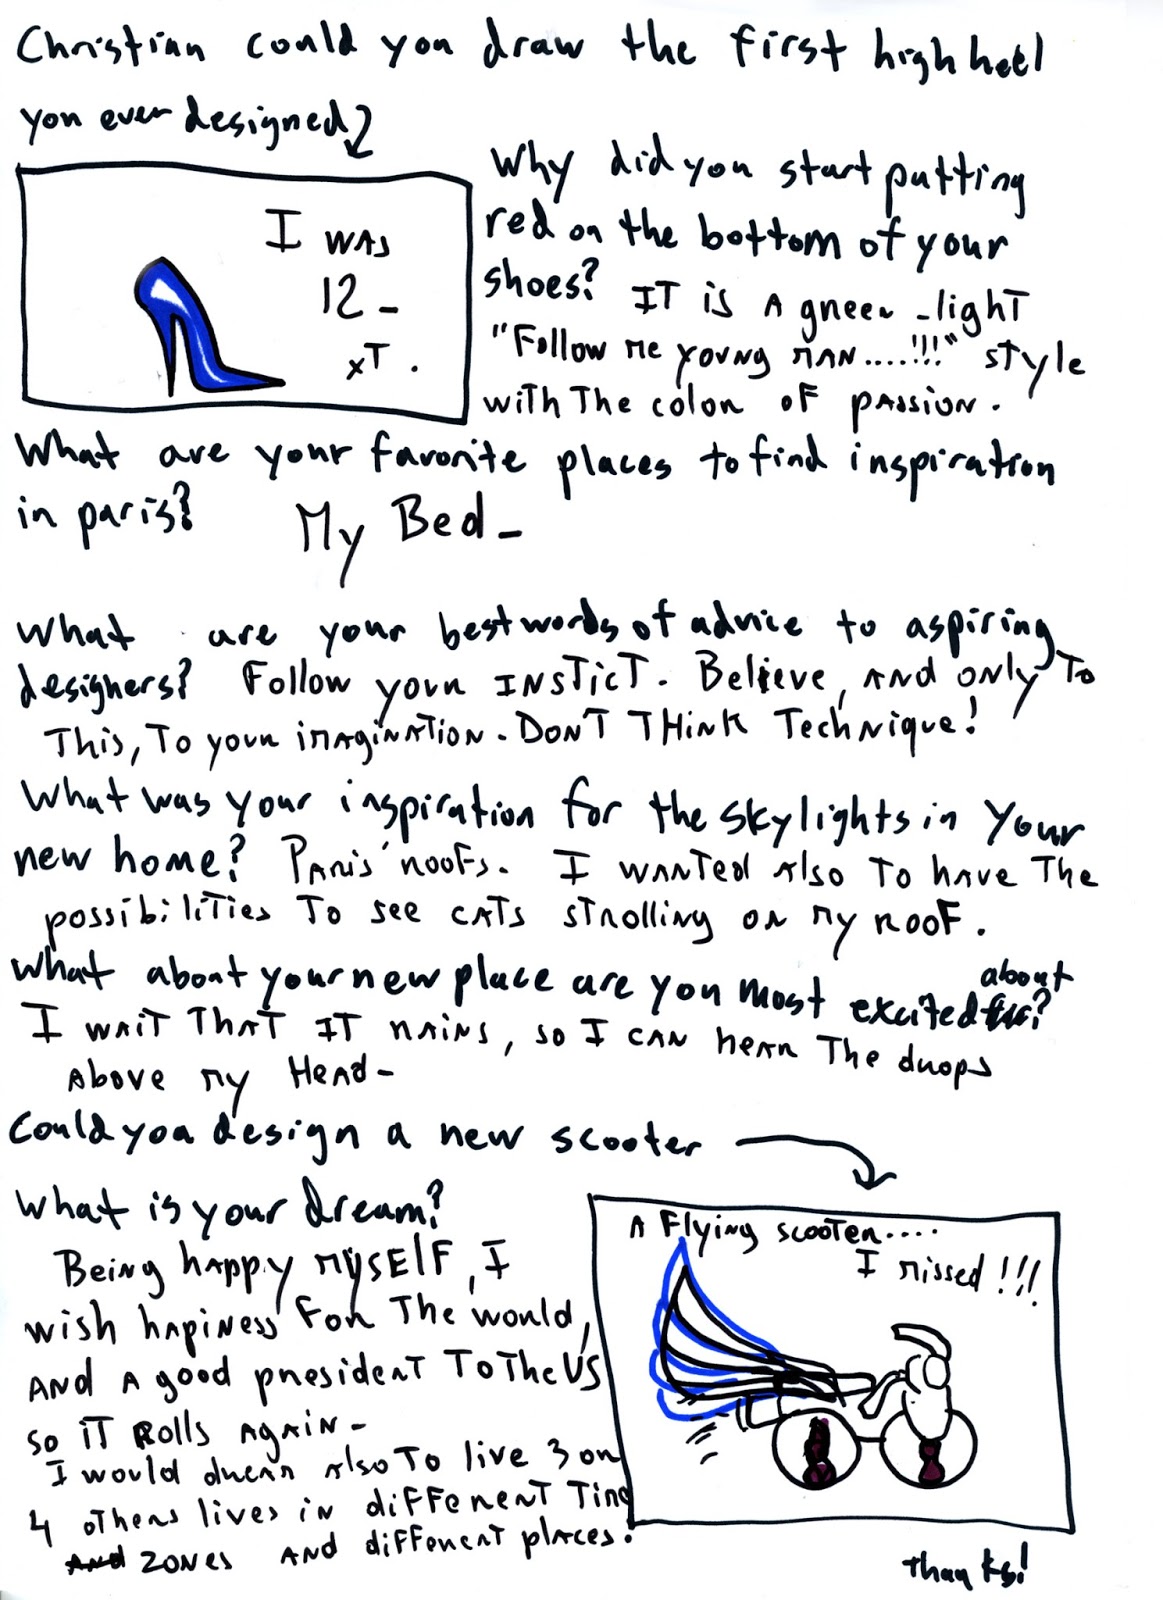 Christian could you draw the first high heel
you ever designed?
I WAS
12 -
xT.
Why did you start putting
red on the bottom of your
shoes? IT is A green -light
"Follow me young MAN....!!!" style
with The color of PASSION.
What are your favorite places to find inspiration
in paris? My Bed -
What are your best words of advice to aspiring
designers? Follow your INSTicT. Believe, AND only To
This, To your imagination. DON'T THINK Technique!
What was your inspiration for the skylights in your
new home? Paris' roofs. I wanted also to have the
possibilities To see cats strolling on my roof.
What about your new place are you most excited about?
I wait That IT rains, so I can hear The drops
above my Head -
Could you design a new scooter
A Flying scooter....
I missed !!!
What is your dream?
Being happy MYSELF, I
wish hapiness For The world,
AND A good president To The US
so iT Rolls Again -
I would dream also To live 3 or
4 others lives in different Time
zones and different places.
Thanks!